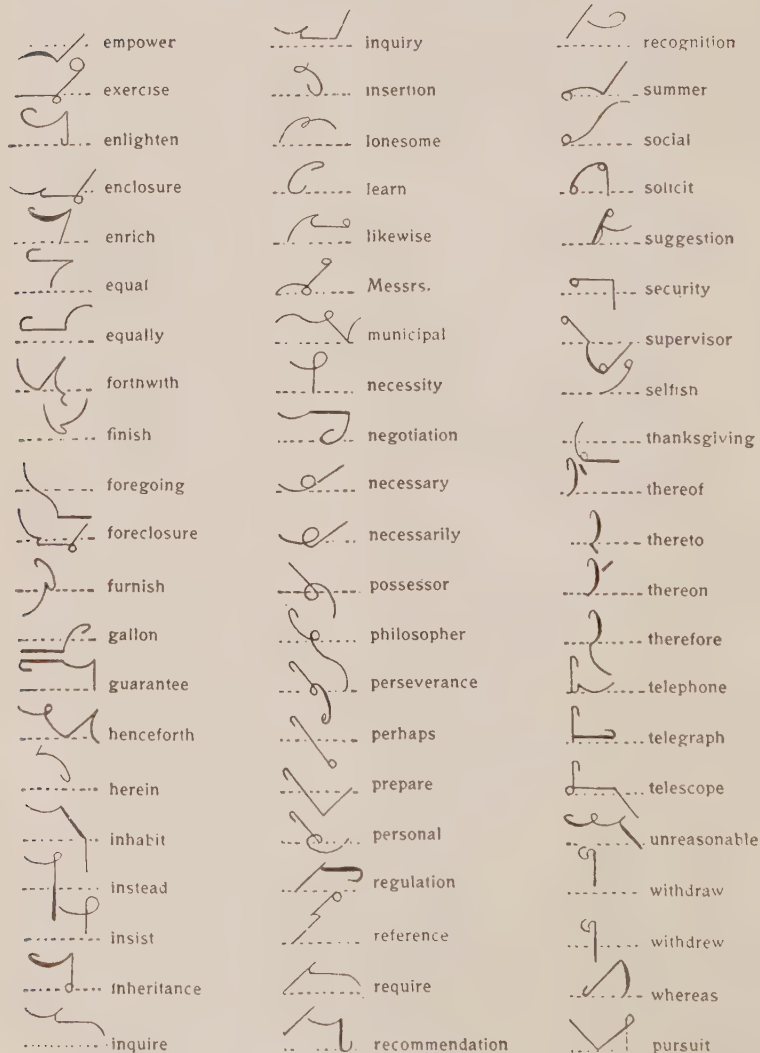 empower
exercise
enlighten
enclosure
enrich
equal
equally
forthwith
finish
foregoing
foreclosure
furnish
gallon
guarantee
henceforth
herein
inhabit
instead
insist
inheritance
inquire
inquiry
insertion
lonesome
learn
likewise
Messrs.
municipal
necessity
negotiation
necessary
necessarily
possessor
philosopher
perseverance
perhaps
prepare
personal
regulation
reference
require
recommendation
recognition
summer
social
solicit
suggestion
security
supervisor
selfish
thanksgiving
thereof
thereto
thereon
therefore
telephone
telegraph
telescope
unreasonable
withdraw
withdrew
whereas
pursuit